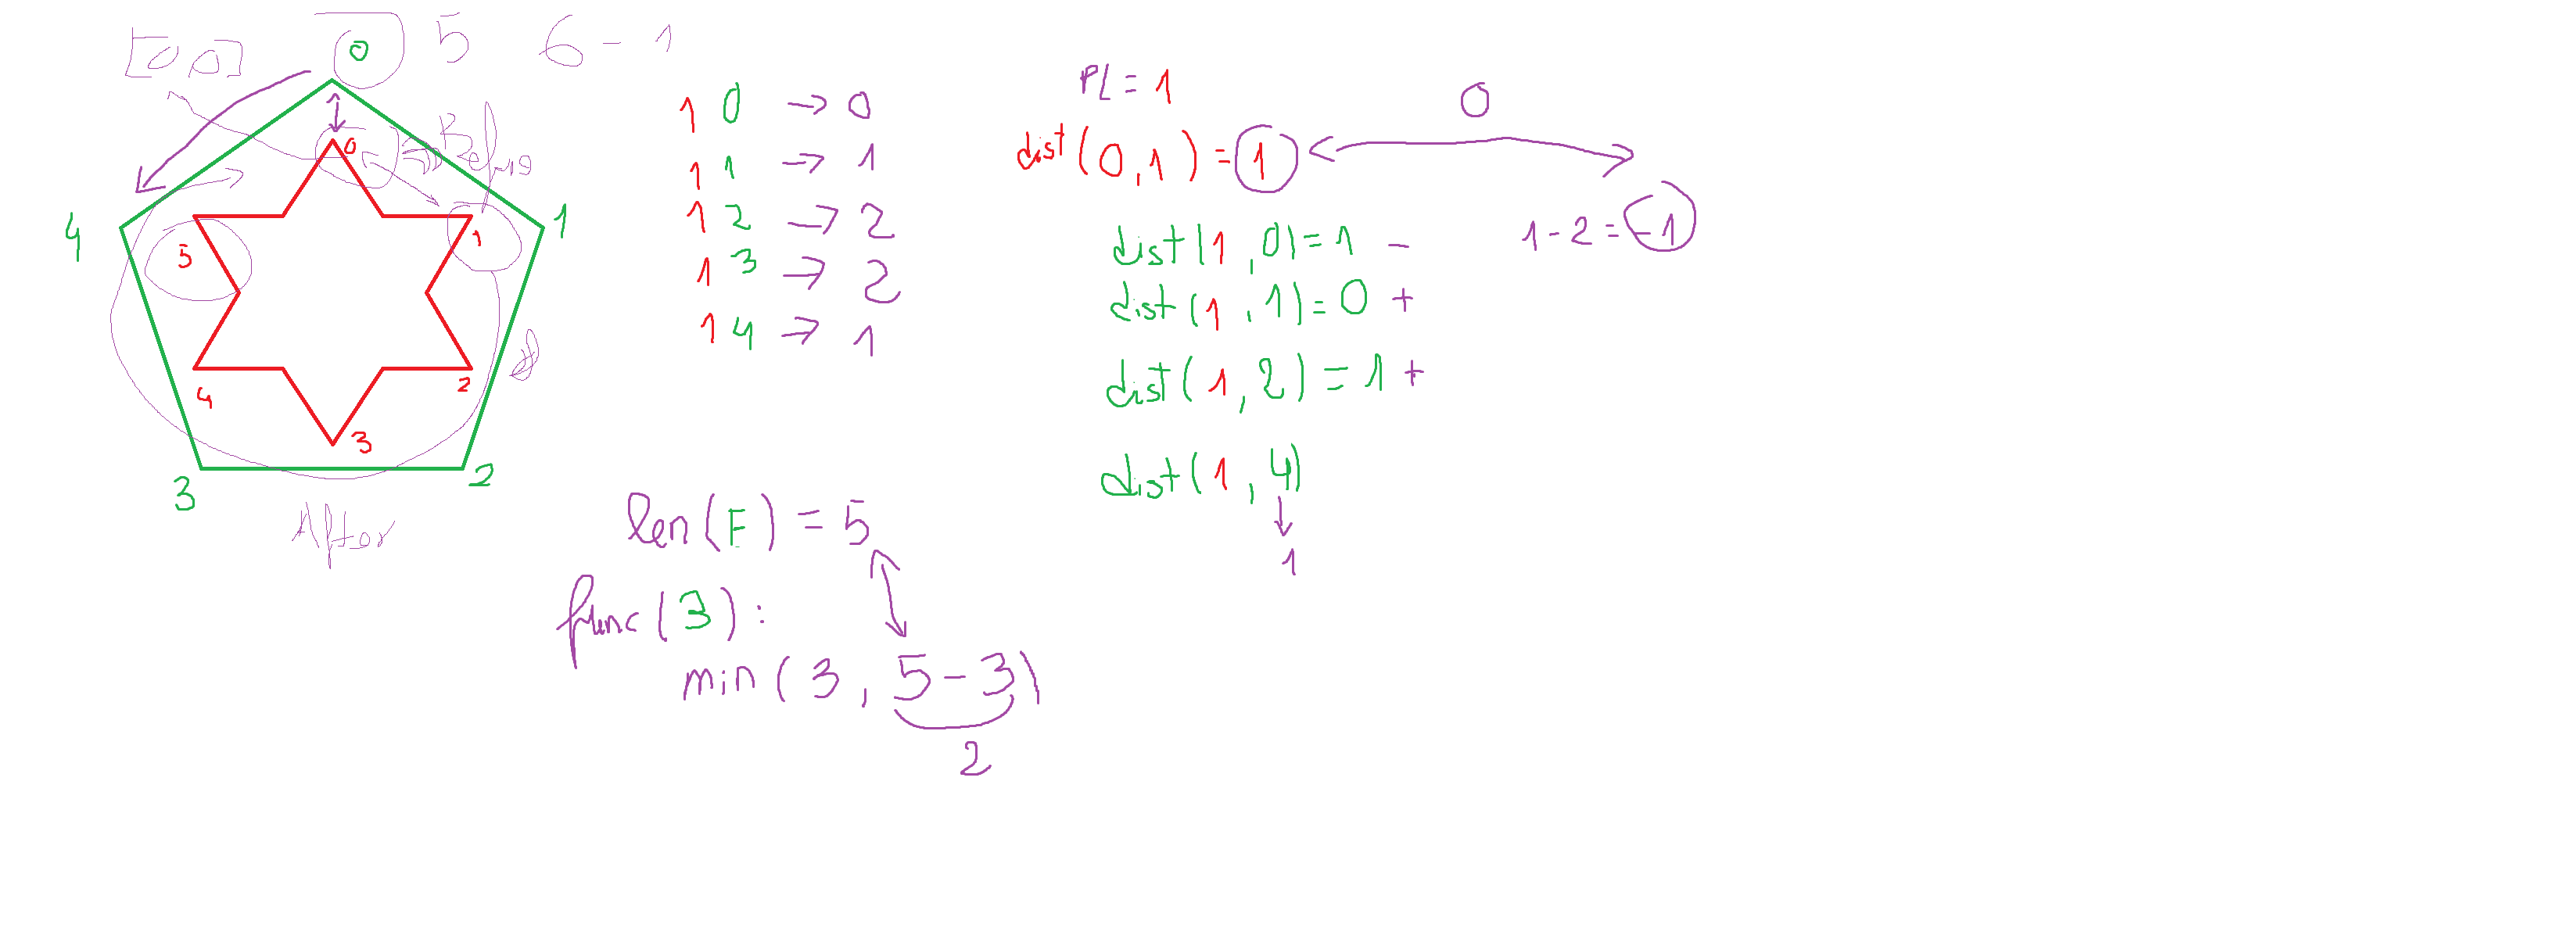 [0,0] 0 5 6 - 1
0
4 1
5 1
4 2
3
3 2
After
1 0 → 0
1 1 → 1
1 2 → 2
1 3 → 2
1 4 → 1
len(F) = 5
func(3):
min(3, 5-3)
2
PL = 1
dist(0,1) = 1
0
1-2 = -1
dist(1,0) = 1 -
dist(1,1) = 0 +
dist(1,2) = 1 +
dist(1,4)
↓
1